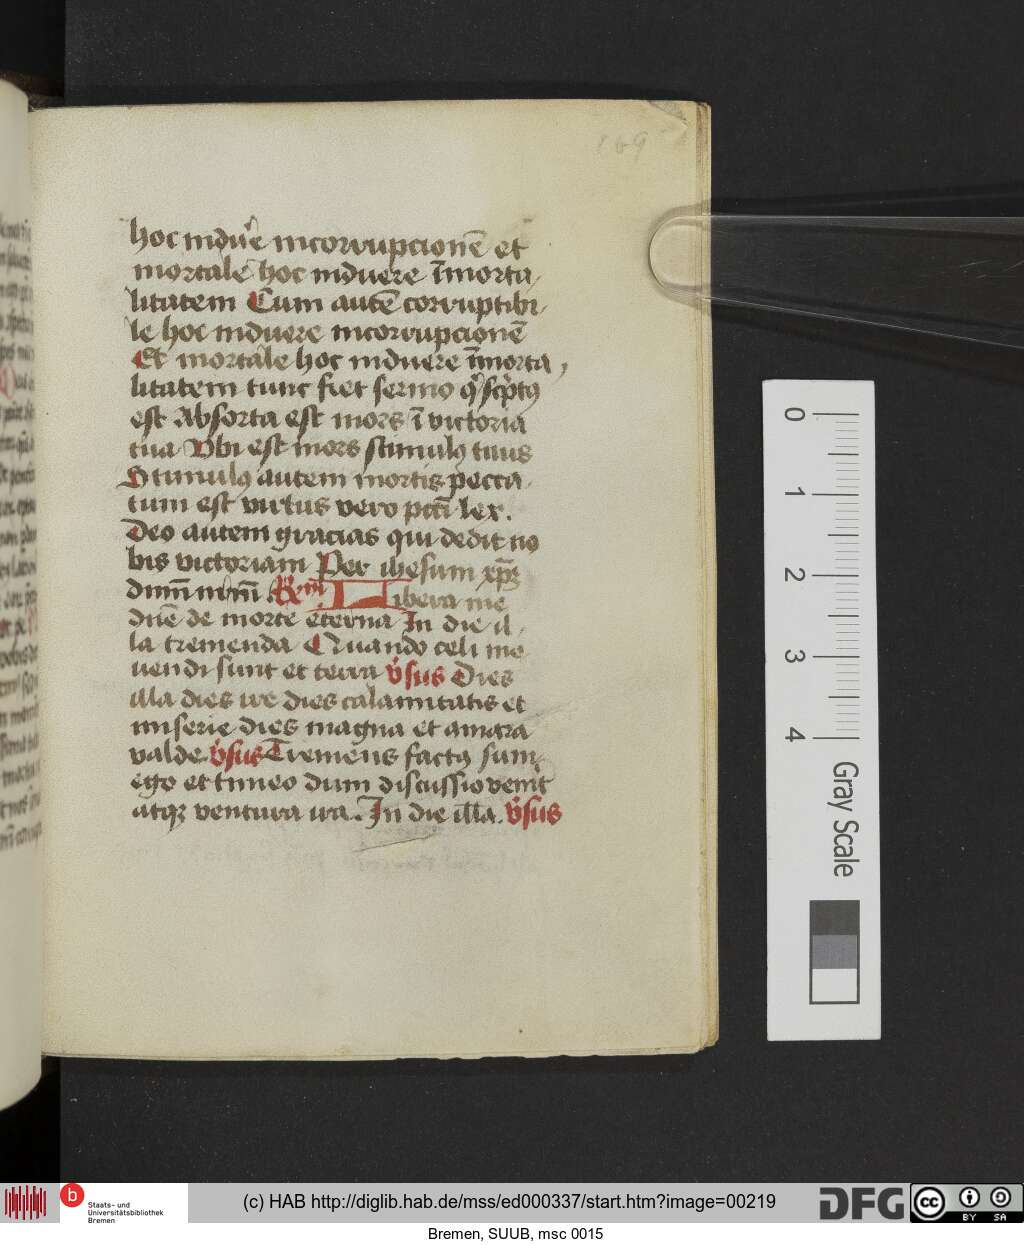 169
hoc induͤe incorrupcionē et
mortale hoc induere īmorta
litatem Cum autē corruptibi
le hoc induere incorrupcionē
Et mortale hoc induere īmorta
litatem tunc fiet sermo qͥ scͥptꝰ
est Absorta est mors ī victoria
tua Vbi est mors stimulꝰ tuus
Stimulꝰ autem mortis pecca
tum est virtus vero pccī lex.
Deo autem gracias qui dedit no
bis victoriam Per ihesum xp̄ꝫ
dnm̄ nrm̄. Libera me
dnē de morte eterna In die il
la tremenda Quando celi mo
uendi sunt et terra v̓sus Dies
illa dies ire dies calamitatis et
miserie dies magna et amara
valde v̓sus Tremens factꝰ sum
ego et timeo dum discussio venīt
atqꝫ ventura ira. In die illa. v̓sus
0
1
2
3
4
Gray Scale
b
Staats- und
Universitätsbibliothek
Bremen
(c) HAB http://diglib.hab.de/mss/ed000337/start.htm?image=00219
DFG
cc
BY SA
Bremen, SUUB, msc 0015